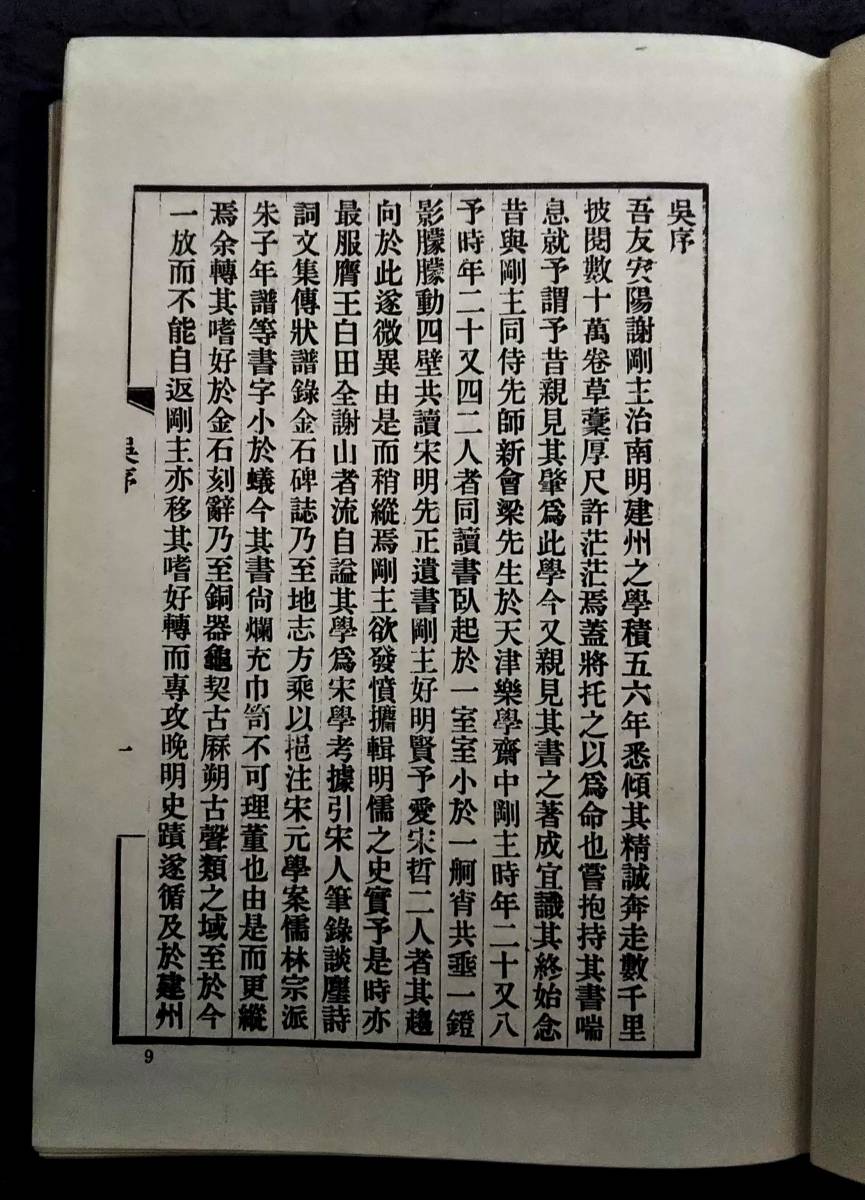 吳序
吾友安陽謝剛主治南明建州之學積五六年悉傾其精誠奔走數千里
披閱數十萬卷草藳厚尺許茫茫焉蓋將托之以爲命也嘗抱持其書喘
息就予謂予昔親見其肇爲此學今又親見其書之著成宜識其終始念
昔與剛主同侍先師新會梁先生於天津樂學齋中剛主時年二十又八
予時年二十又四二人者同讀書臥起於一室室小於一舸宵共垂一鐙
影朦朦動四壁共讀宋明先正遺書剛主好明賢予愛宋哲二人者其趨
向於此遂微異由是而稍縱焉剛主欲發憤擴輯明儒之史實予是時亦
最服膺王白田全謝山者流自謚其學爲宋學考據引宋人筆錄談麈詩
詞文集傳狀譜錄金石碑誌乃至地志方乘以挹注宋元學案儒林宗派
朱子年譜等書字小於蟻今其書尙爛充巾笥不可理董也由是而更縱
焉余轉其嗜好於金石刻辭乃至銅器龜契古厤朔古聲類之域至於今
一放而不能自返剛主亦移其嗜好轉而專攻晚明史蹟遂循及於建州
吳序
一
9